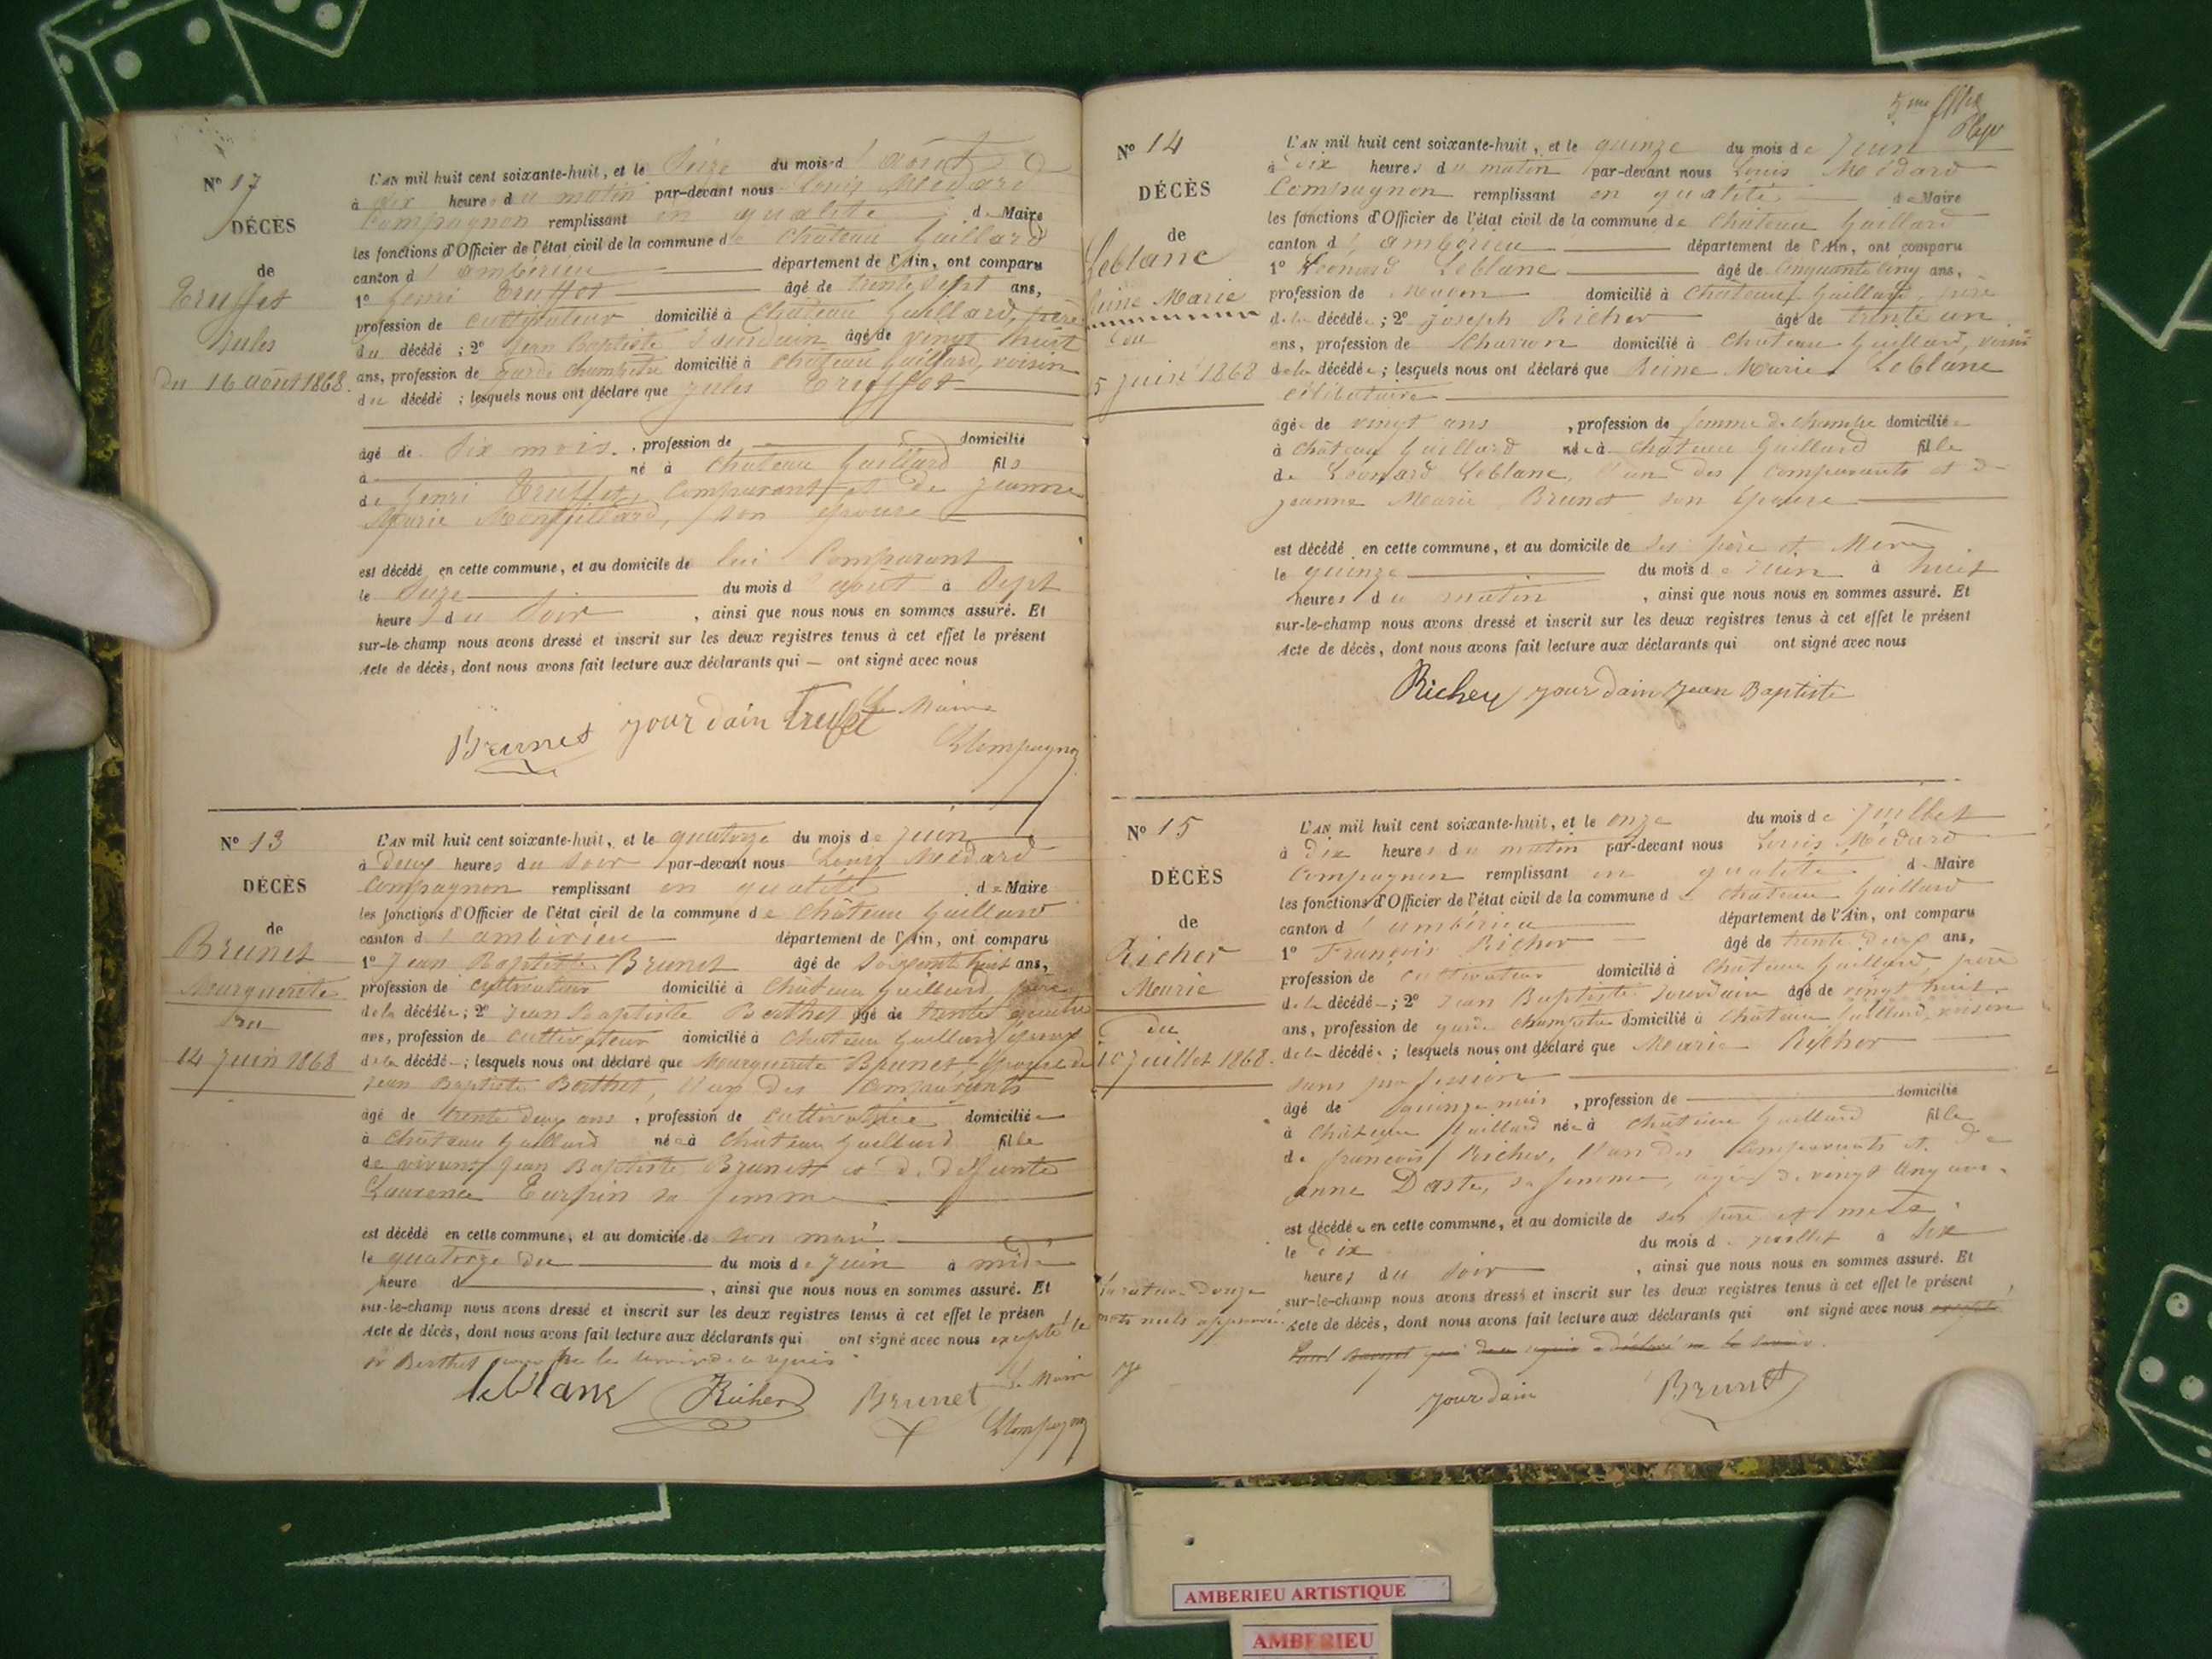 Nº 17
DÉCÈS
de
Truffet
Jules
Du 16 août 1868.
L'AN mil huit cent soixante-huit, et le Seize du mois d'août
à dix heures du matin par-devant nous Louis Médard
Compagnon remplissant en qualité de Maire
les fonctions d'Officier de l'état civil de la commune de Château Gaillard
canton d'ambérieu département de l'Ain, ont comparu
1º henri Truffet âgé de trente sept ans,
profession de cultivateur domicilié à Château Gaillard, père
du décédé ; 2º Jean Baptiste Jourdain âgé de vingt huit
ans, profession de garde champêtre domicilié à Château Gaillard, voisin
du décédé ; lesquels nous ont déclaré que Jules Truffet
âgé de Six mois. , profession de domicilié
à né à Château Gaillard fils
de henri Truffet, Comparant et de jeanne
Marie son épouse
est décédé en cette commune, et au domicile de lui Comparant
le du mois d'aout à Sept
heures du Soir , ainsi que nous nous en sommes assuré. Et
sur-le-champ nous avons dressé et inscrit sur les deux registres tenus à cet effet le présent
Acte de décès, dont nous avons fait lecture aux déclarants qui — ont signé avec nous
Brunet jourdain Truffet Le Maire
LCompagnon
Nº 13
DÉCÈS
de
Brunet
Marguerite
Du
14 Juin 1868
L'AN mil huit cent soixante-huit, et le quatorze du mois de Juin
à deux heures du soir par-devant nous Louis Médard
Compagnon remplissant en qualité de Maire
les fonctions d'Officier de l'état civil de la commune de Château Gaillard
canton d'ambérieu département de l'Ain, ont comparu
1º Jean Baptiste Brunet âgé de soixante huit ans,
profession de cultivateur domicilié à Château Gaillard, père
de la décédée ; 2º Jean Baptiste Berthet âgé de trente quatre
ans, profession de cultivateur domicilié à Château Gaillard, époux
de la décédée ; lesquels nous ont déclaré que Marguerite Brunet, épouse de
Jean Baptiste Berthet, l'un des Comparants
âgé de trente deux ans , profession de cultivatrice domiciliée
à Château Gaillard née à Château Gaillard fille
de vivant Jean Baptiste Brunet et de deffunte
Laurence Turpin sa femme
est décédé en cette commune, et au domicile de son mari
le quatorze du du mois de Juin à midi
heure d , ainsi que nous nous en sommes assuré. Et
sur-le-champ nous avons dressé et inscrit sur les deux registres tenus à cet effet le présen
Acte de décès, dont nous avons fait lecture aux déclarants qui ont signé avec nous excepté le
Sr Berthet pour ne le savoir de ce requis
leblanc Richer Brunet Le Maire
LCompagnon
5me
Nº 14
DÉCÈS
de
Leblanc
Reine Marie
Du
15 juin 1868
L'AN mil huit cent soixante-huit, et le quinze du mois de Juin
à dix heures du matin par-devant nous Louis Médard
Compagnon remplissant en qualité de Maire
les fonctions d'Officier de l'état civil de la commune de Château Gaillard
canton d'ambérieu département de l'Ain, ont comparu
1º Léonard Leblanc âgé de Cinquante Cinq ans,
profession de Maçon domicilié à Château Gaillard, père
de la décédée ; 2º Joseph Richer âgé de trente un
ans, profession de Charron domicilié à Château Gaillard, voisin
de la décédée ; lesquels nous ont déclaré que Reine Marie Leblanc
célibataire
âgée de vingt ans , profession de femme de chambre domiciliée
à Château Gaillard née à Château Gaillard fille
de Léonard Leblanc, l'un des Comparants et de
jeanne Marie Brunet son épouse
est décédé en cette commune, et au domicile de ses père et Mère
le quinze du mois de Juin à huit
heures du matin , ainsi que nous nous en sommes assuré. Et
sur-le-champ nous avons dressé et inscrit sur les deux registres tenus à cet effet le présent
Acte de décès, dont nous avons fait lecture aux déclarants qui ont signé avec nous
Richer jourdain jean Baptiste
Nº 15
DÉCÈS
de
Richer
Marie
du
10 juillet 1868.
L'AN mil huit cent soixante-huit, et le onze du mois de Juillet
à dix heures du matin par-devant nous Louis Médard
Compagnon remplissant en qualité de Maire
les fonctions d'Officier de l'état civil de la commune de Château Gaillard
canton d'ambérieu département de l'Ain, ont comparu
1º François Richer âgé de trente deux ans,
profession de cultivateur domicilié à Château Gaillard, père
de la décédée ; 2º Jean Baptiste Jourdain âgé de vingt huit
ans, profession de garde champêtre domicilié à Château Gaillard, voisin
de la décédée ; lesquels nous ont déclaré que Marie Richer
sans profession
âgé de quinze mois , profession de domicilié
à Château Gaillard née à Château Gaillard fille
de françois Richer, l'un des Comparants et de
anne Daste, sa femme, âgée de vingt cinq ans.
est décédée en cette commune, et au domicile de ses père et mère
le dix du mois de juillet à Six
heures du soir , ainsi que nous nous en sommes assuré. Et
sur-le-champ nous avons dressé et inscrit sur les deux registres tenus à cet effet le présent
Acte de décès, dont nous avons fait lecture aux déclarants qui ont signé avec nous excepté
qui de ce requis a déclaré ne le savoir.
rature douze
mots nuls approuvé.
jourdain Brunet
AMBERIEU ARTISTIQUE
AMBERIEU